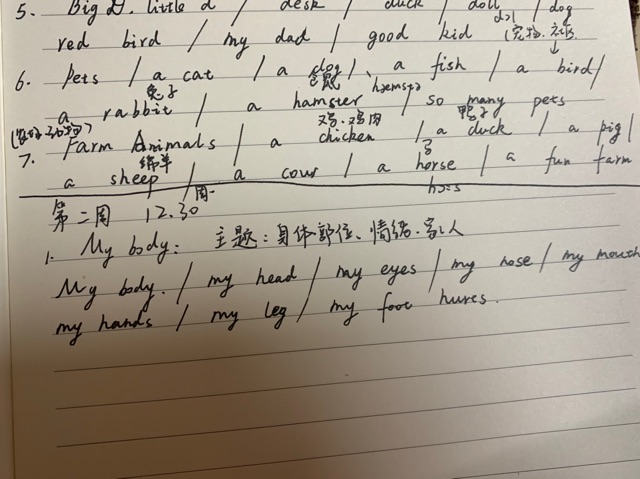 5. Big D. little d / desk / duck / doll / dog
dɔl
red bird / my dad / good kid (宠物.
6. Pets / a cat / a dog / a fish / a bird /
兔子 仓鼠 hæmstə
a rabbit / a hamster / so many pets
鸡.鸡肉 鸭子
7. Farm Animals / a chicken / a duck / a pig /
绵羊 马
a sheep / a cow / a horse / a fun farm
hɔ:s
第二周 12.30 周一
1. My body: 主题:身体部位、情绪.家人
My body. / my head / my eyes / my nose / my mouth
my hands / my leg / my foot hurts.